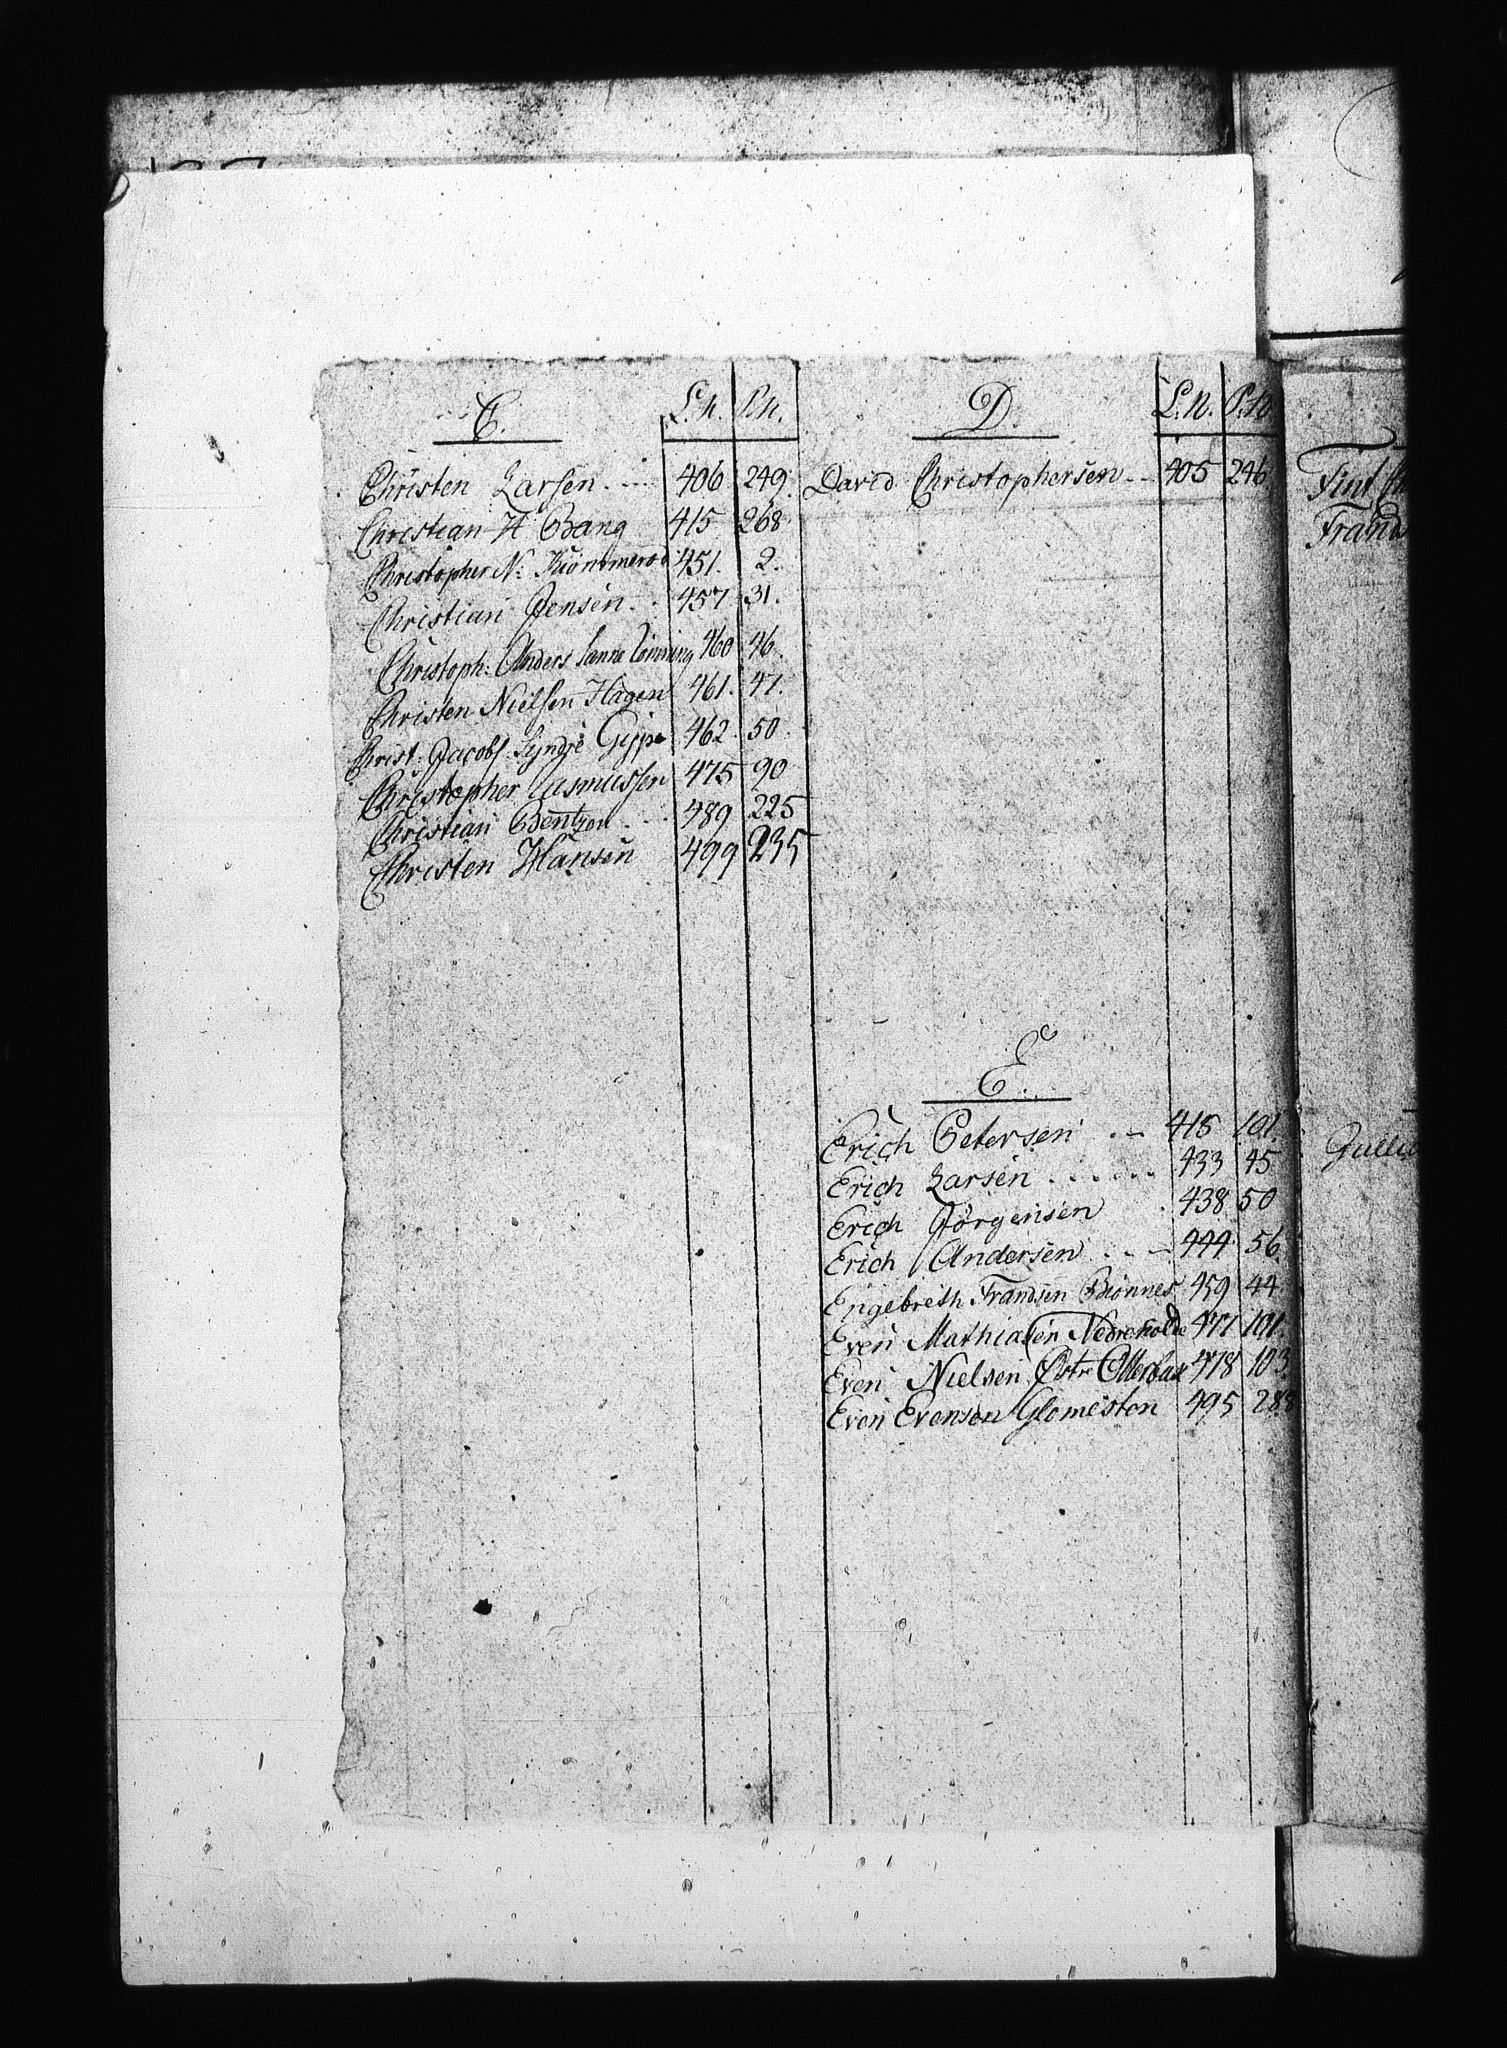 C. L.N. P.N.
Christen Larsen 406 249.
Christian H Bang 415 268
Christopher N: 451. 2.
Christian Jensen 457 31.
Christoph: Anders 460 46.
Christen Nielsen Hagen 461. 47.
Christ: Jacobs. Syndre Gippe 462. 50.
Christopher Rasmussen 475 90
Christian Bentzen 489 225
Christen Hansen 499 235
D. L.N. P.N.
David Christophersen 405 246
E.
Erich Petersen 415 101.
Erich Larsen 433 45
Erich Jørgensen 438 50
Erich Andersen 444 56
Engebreth Frandsen Biønnes 459 44
Even Mathiasen 471 101.
Even Nielsen Østre 478 103
Even Evensen Glomeston 495 288